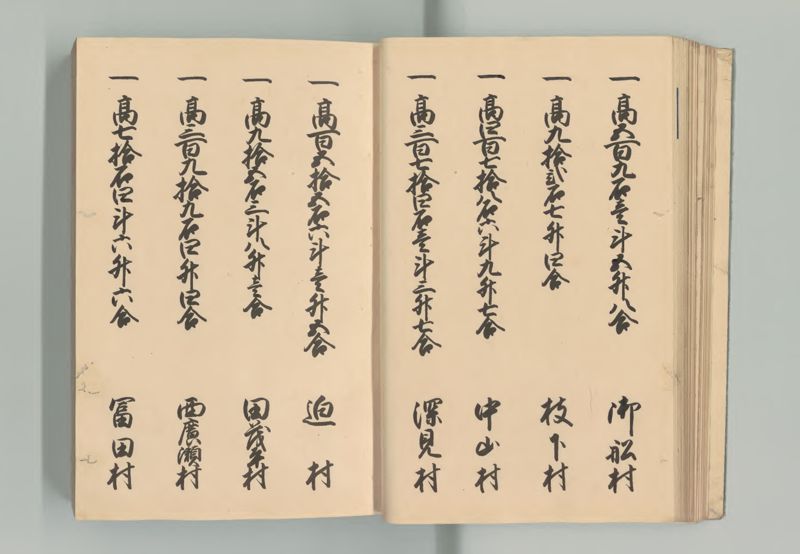 一 高五百九石壱斗五升八合 御舩村
一 高九拾弐石七升四合 枝下村
一 高四百七拾八石六斗九升七合 中山村
一 高三百七拾四石壱斗三升七合 深見村
一 高百五拾五石六斗壱升五合 迫村
一 高九拾五石三斗八升壱合 田茂平村
一 高三百九拾九石四升四合 西廣瀬村
一 高七拾石四斗六升六合 冨田村